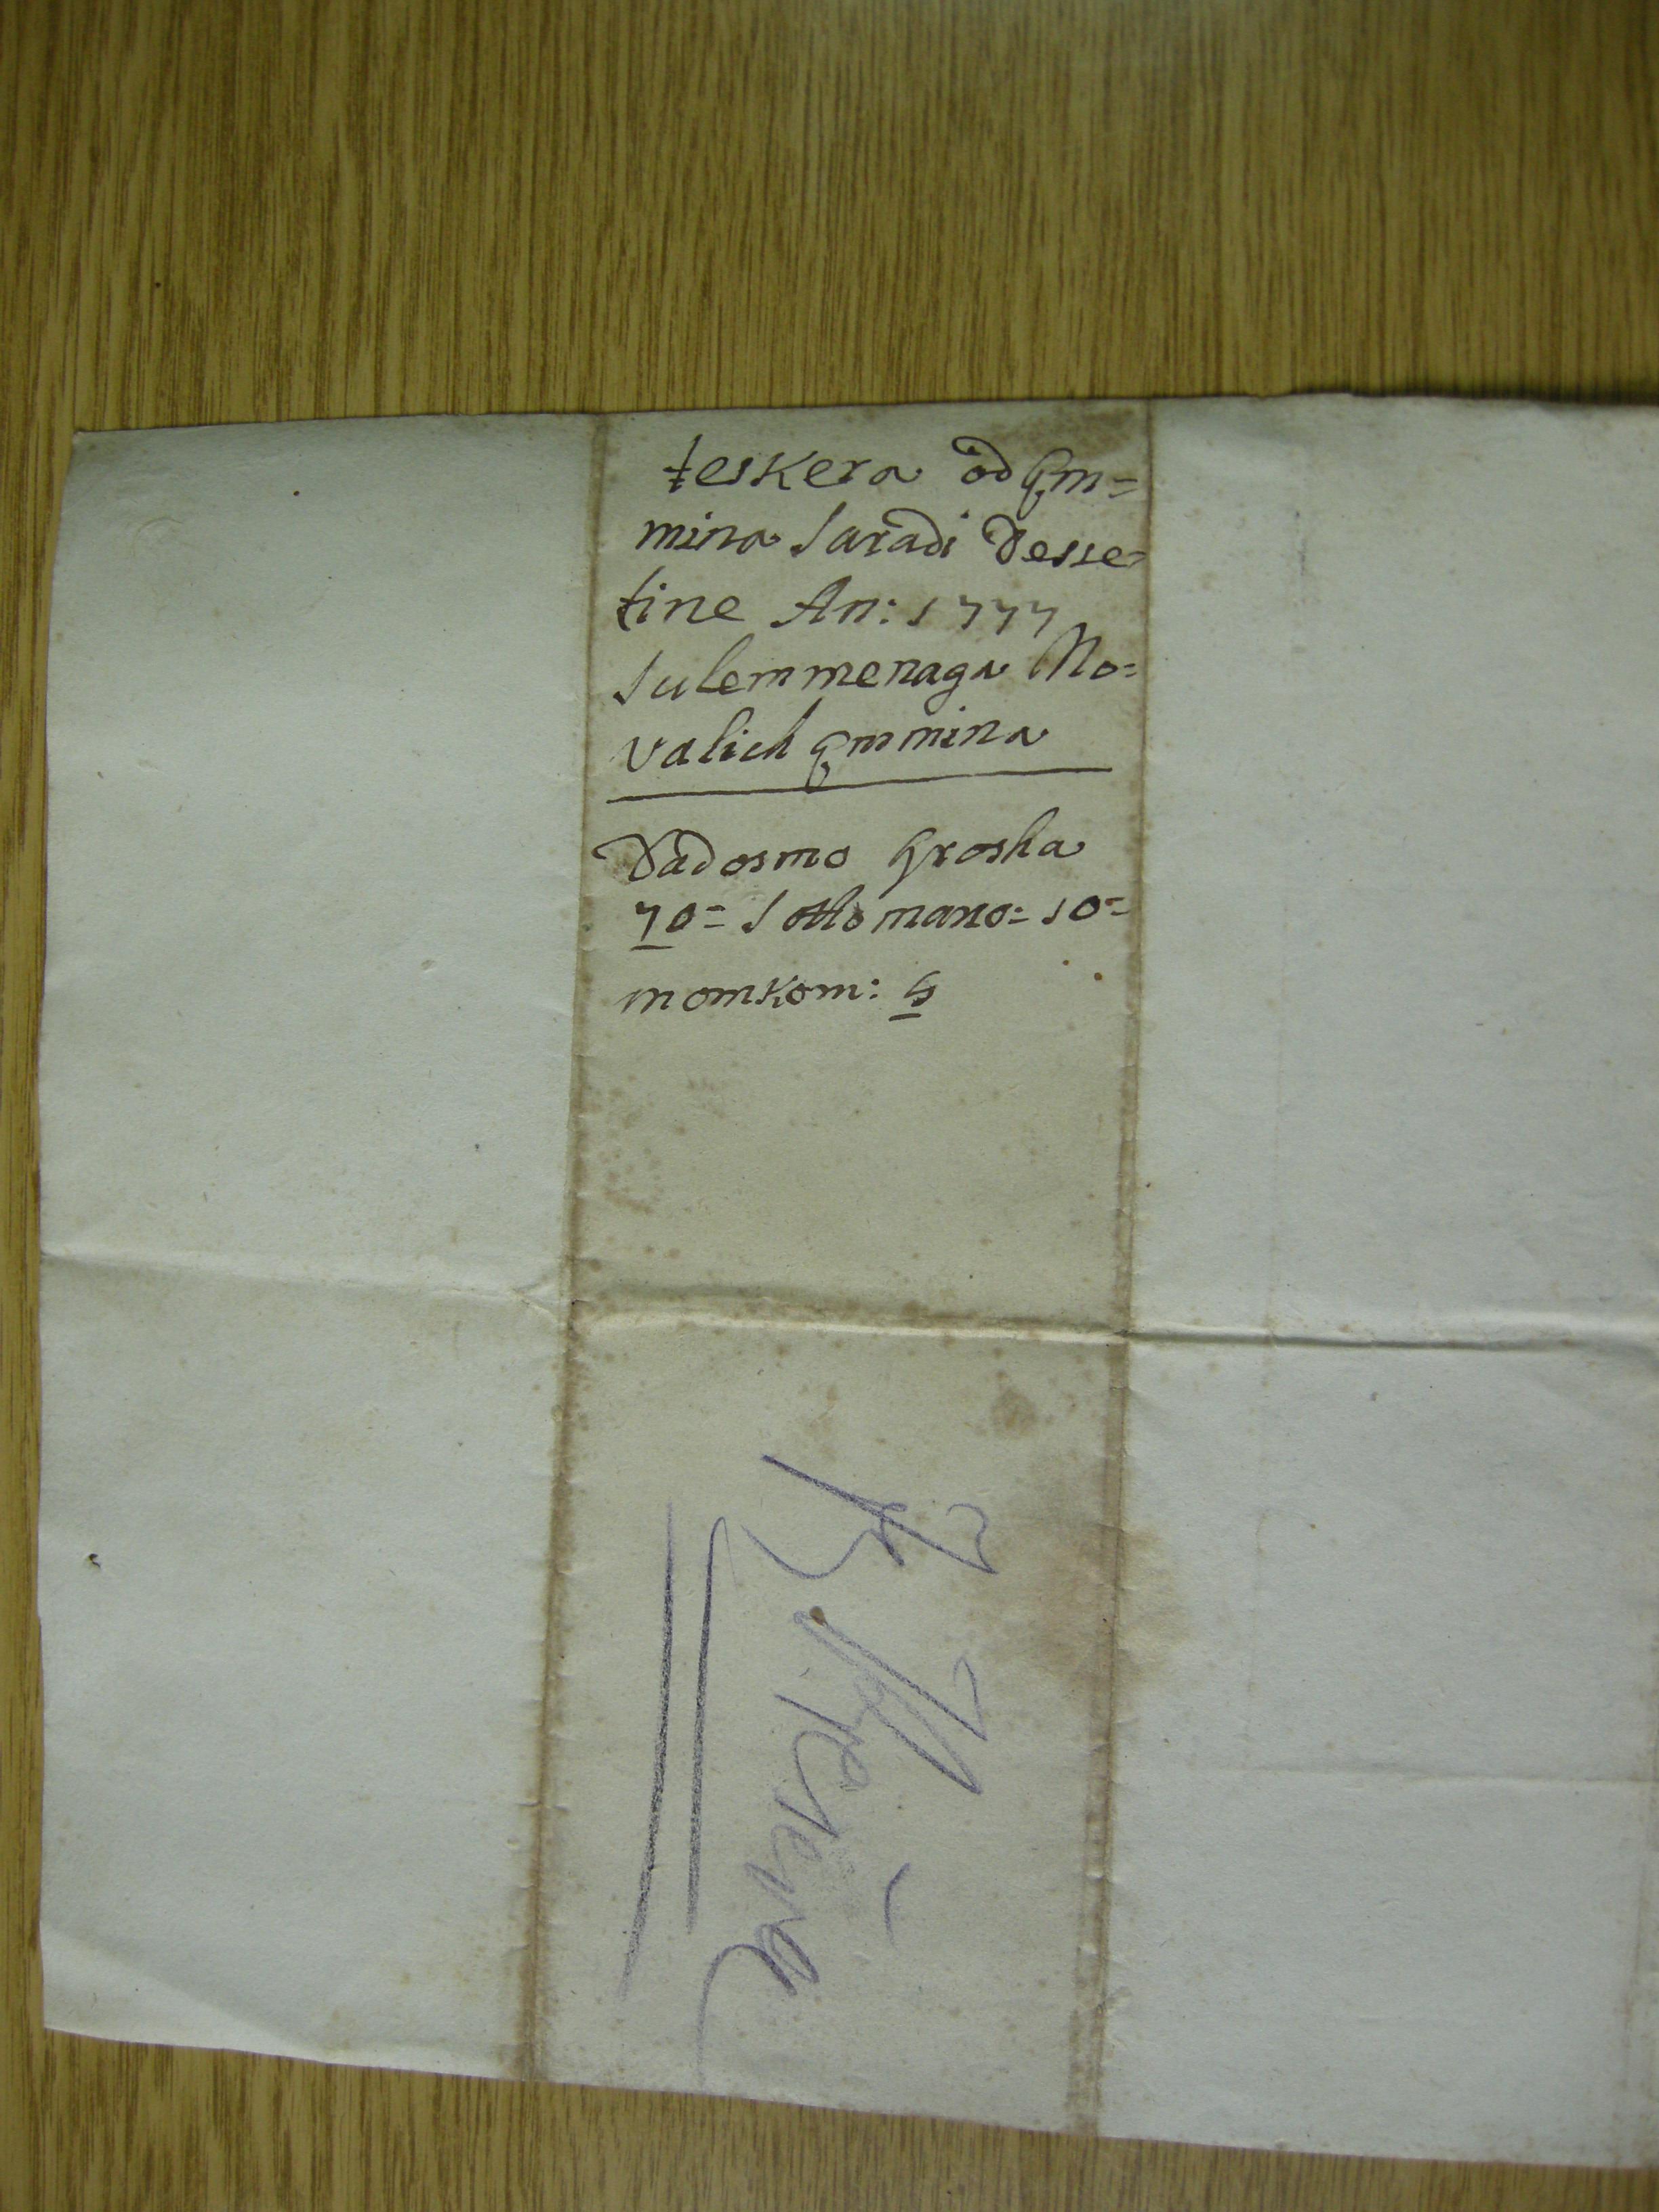 teskera od Em=
mina saradi Desse=
tine An: 1777
Sulemmenaga No=
valich Emmina
Dadosmo Grosha
70= Sottomano= 10=
momkom: 5